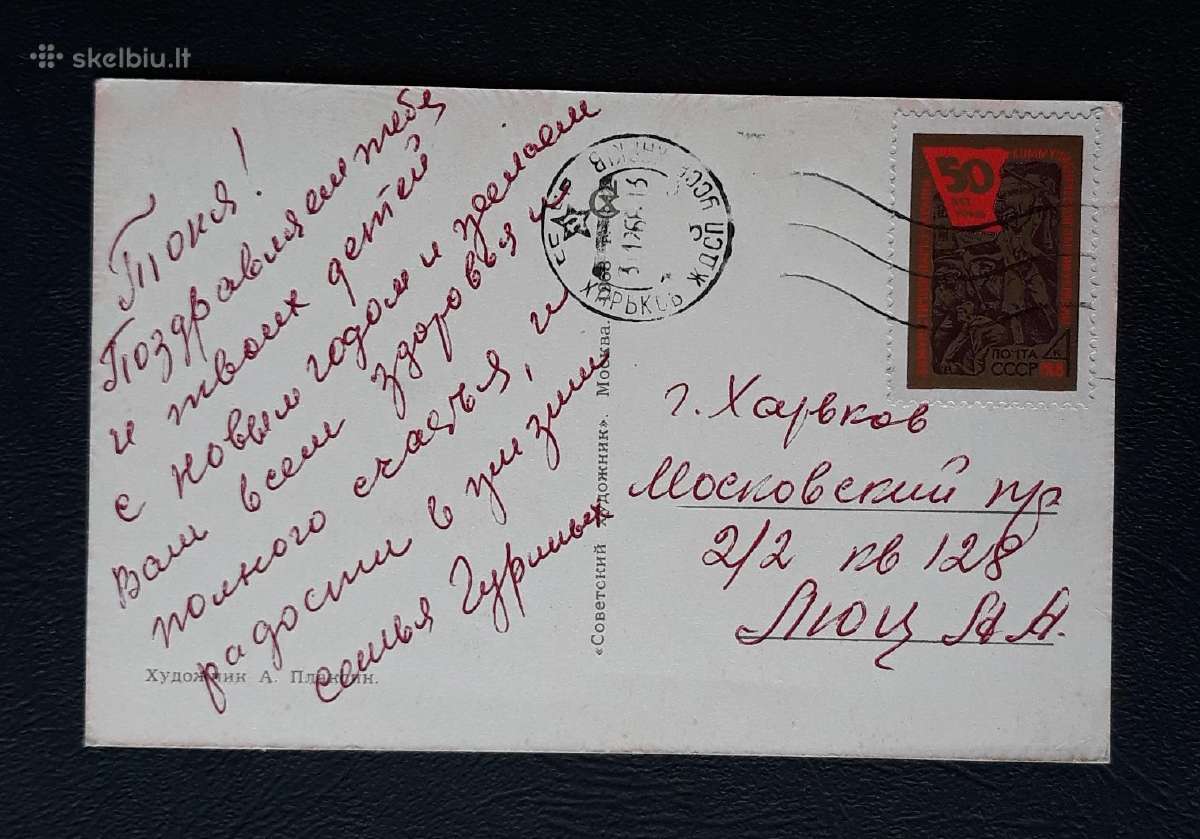 skelbiu.lt
Токя!
Поздравляем тебя
и твоих детей
с новым годом и желаем
Вам всем здоровья
полного счастья, и
радости в жизни
семья Гуриных
Художник А. Плаксин.
«Советский художник». Москва.
ХАРЬКОВ
УССР
ЖДСП
50
ЛЕТ
ПОЧТА
СССР
4 к
г. Харьков
Московский пр
2/2 кв 128
Люц А.А.